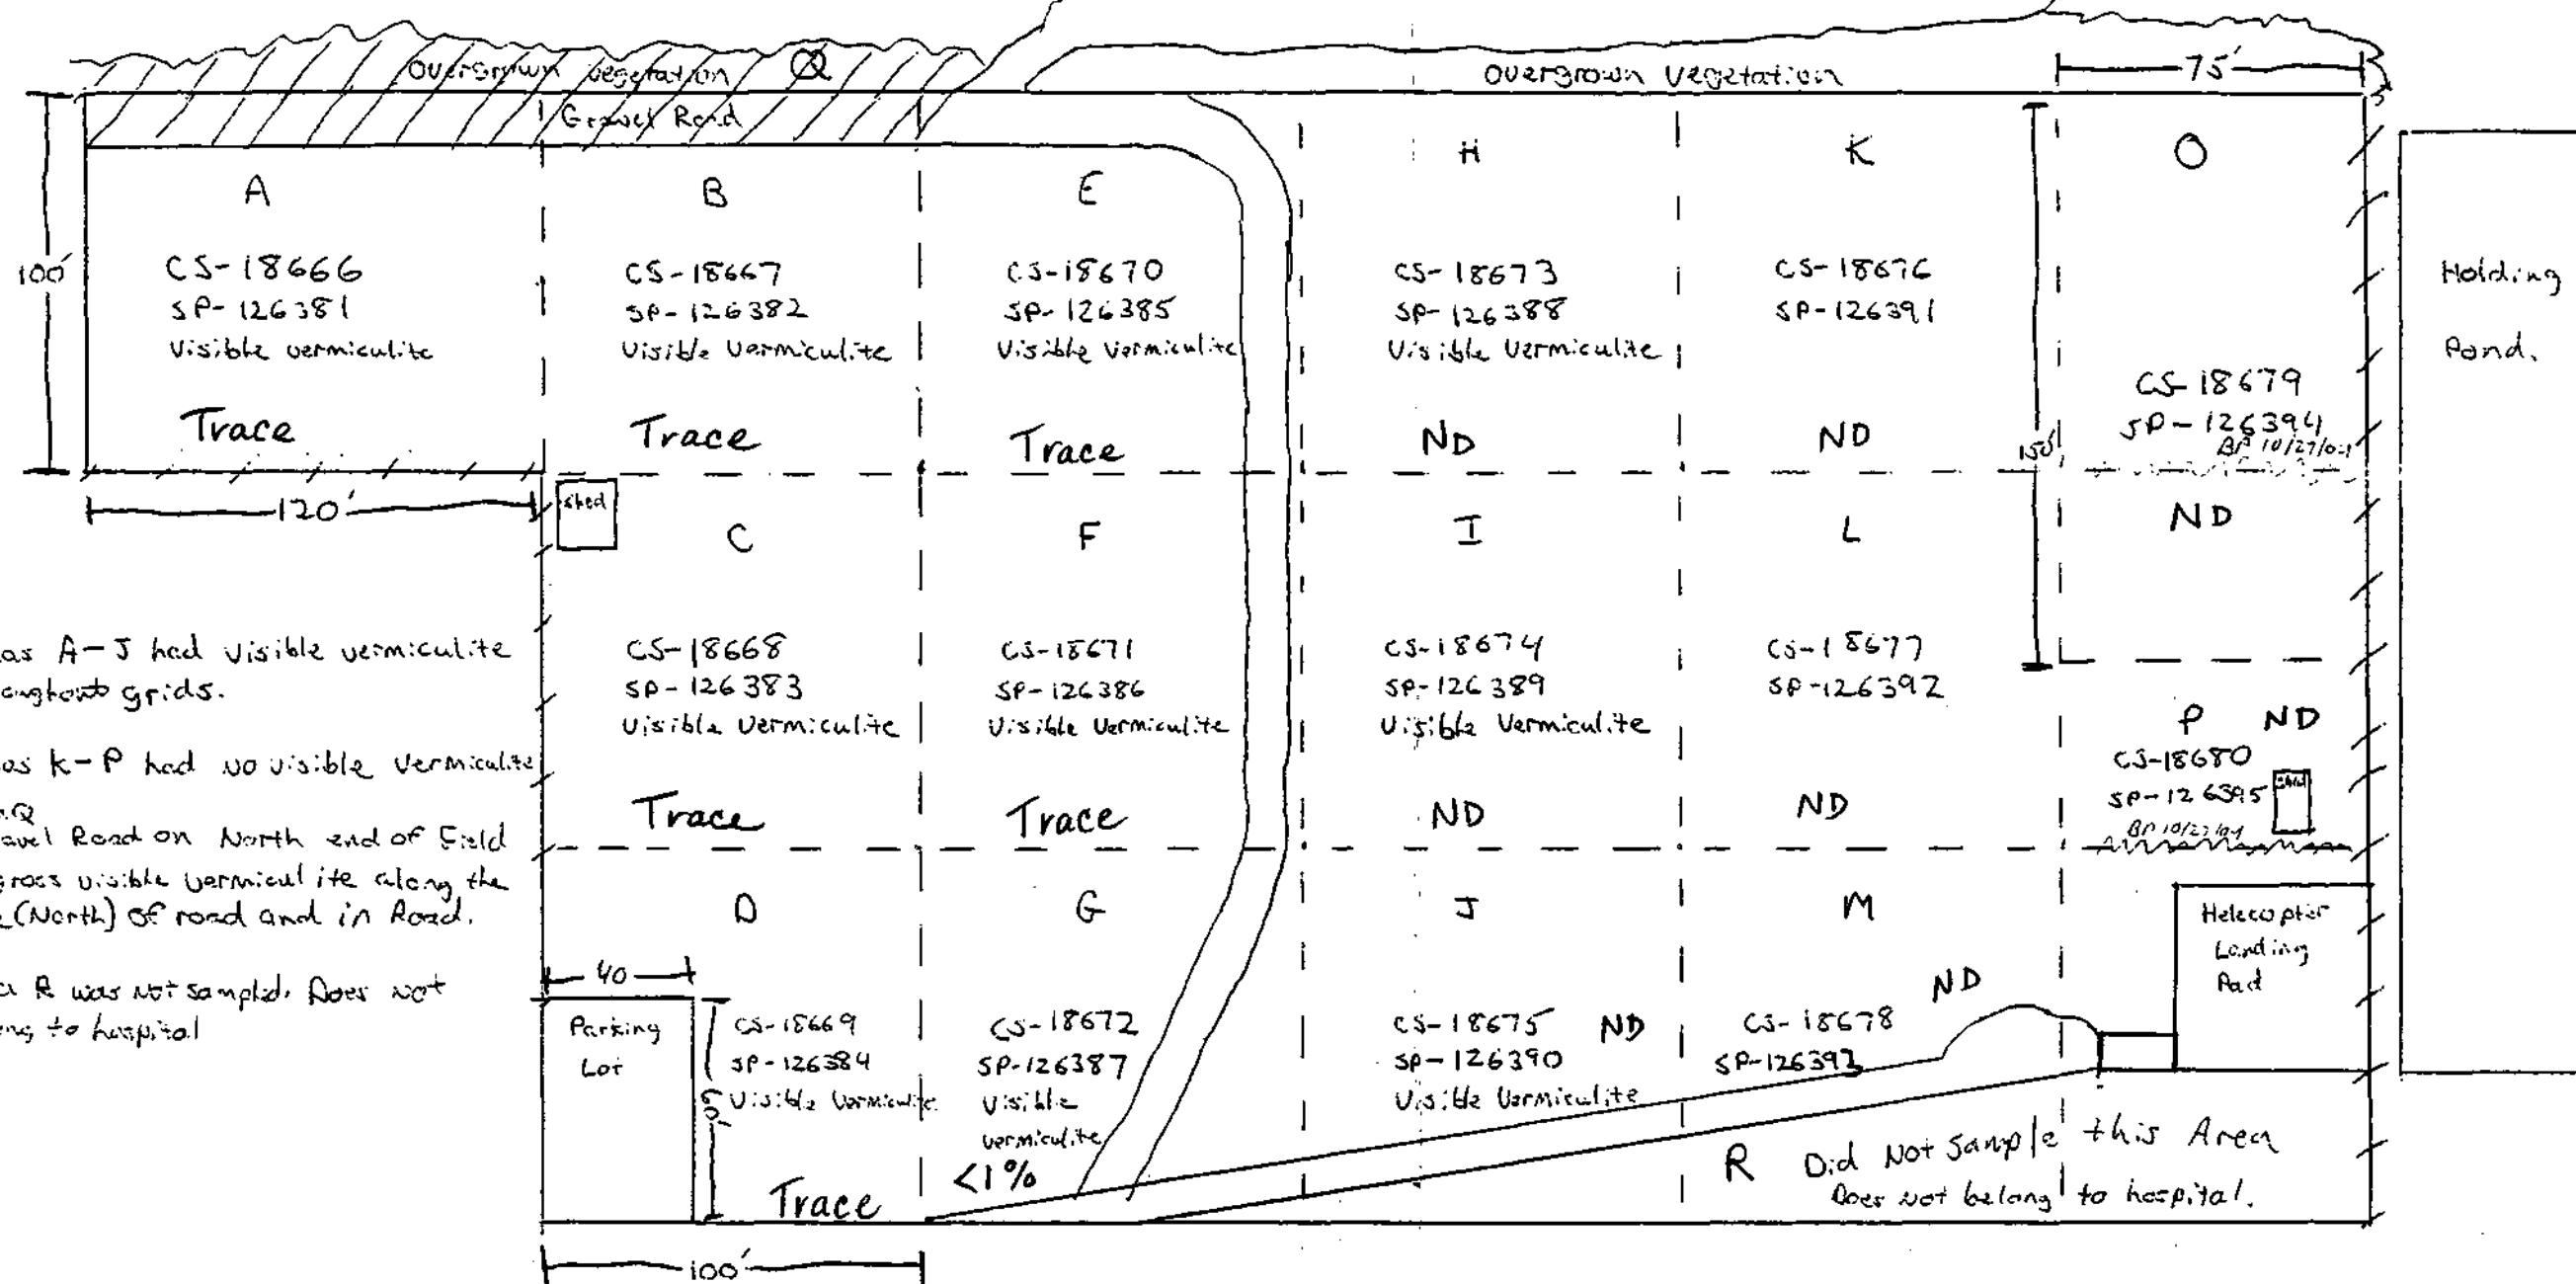 Overgrown Vegetation Q
Overgrown Vegetation
75'
Gravel Road
100'
A
CS-18666
SP-126381
Visible vermiculite
Trace
120'
B
CS-18667
SP-126382
Visible Vermiculite
Trace
E
CS-18670
SP-126385
Visible Vermiculite
Trace
H
CS-18673
SP-126388
Visible Vermiculite
ND
K
CS-18676
SP-126391
ND
150'
O
CS-18679
SP-126394
BP 10/27/04
ND
Holding
Pond.
shed
C
CS-18668
SP-126383
Visible Vermiculite
Trace
F
CS-18671
SP-126386
Visible Vermiculite
Trace
I
CS-18674
SP-126389
Visible Vermiculite
ND
L
CS-18677
SP-126392
ND
P ND
CS-18680
SP-126395
BP 10/27/04
as A-J had visible vermiculite
grids.
as K-P had no visible Vermiculite
Q
avel Road on North end of Field
gross visible vermiculite along the
(North) of road and in Road.
a R was not sampled. Does not
ong to hospital
40
Parking
Lot
60'
D
CS-18669
SP-126384
Visible Vermiculite
Trace
100'
G
CS-18672
SP-126387
Visible
vermiculite
<1%
J
CS-18675 ND
SP-126390
Visible Vermiculite
M
ND
CS-18678
SP-126393
Helecopter
Landing
Pad
R Did Not Sample this Area
Does not belong to hospital.